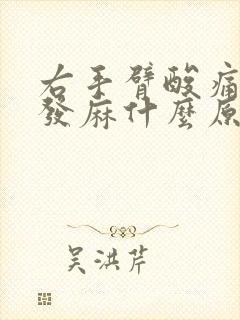 右手臂酸痛
發麻什麼原
吳洪芹